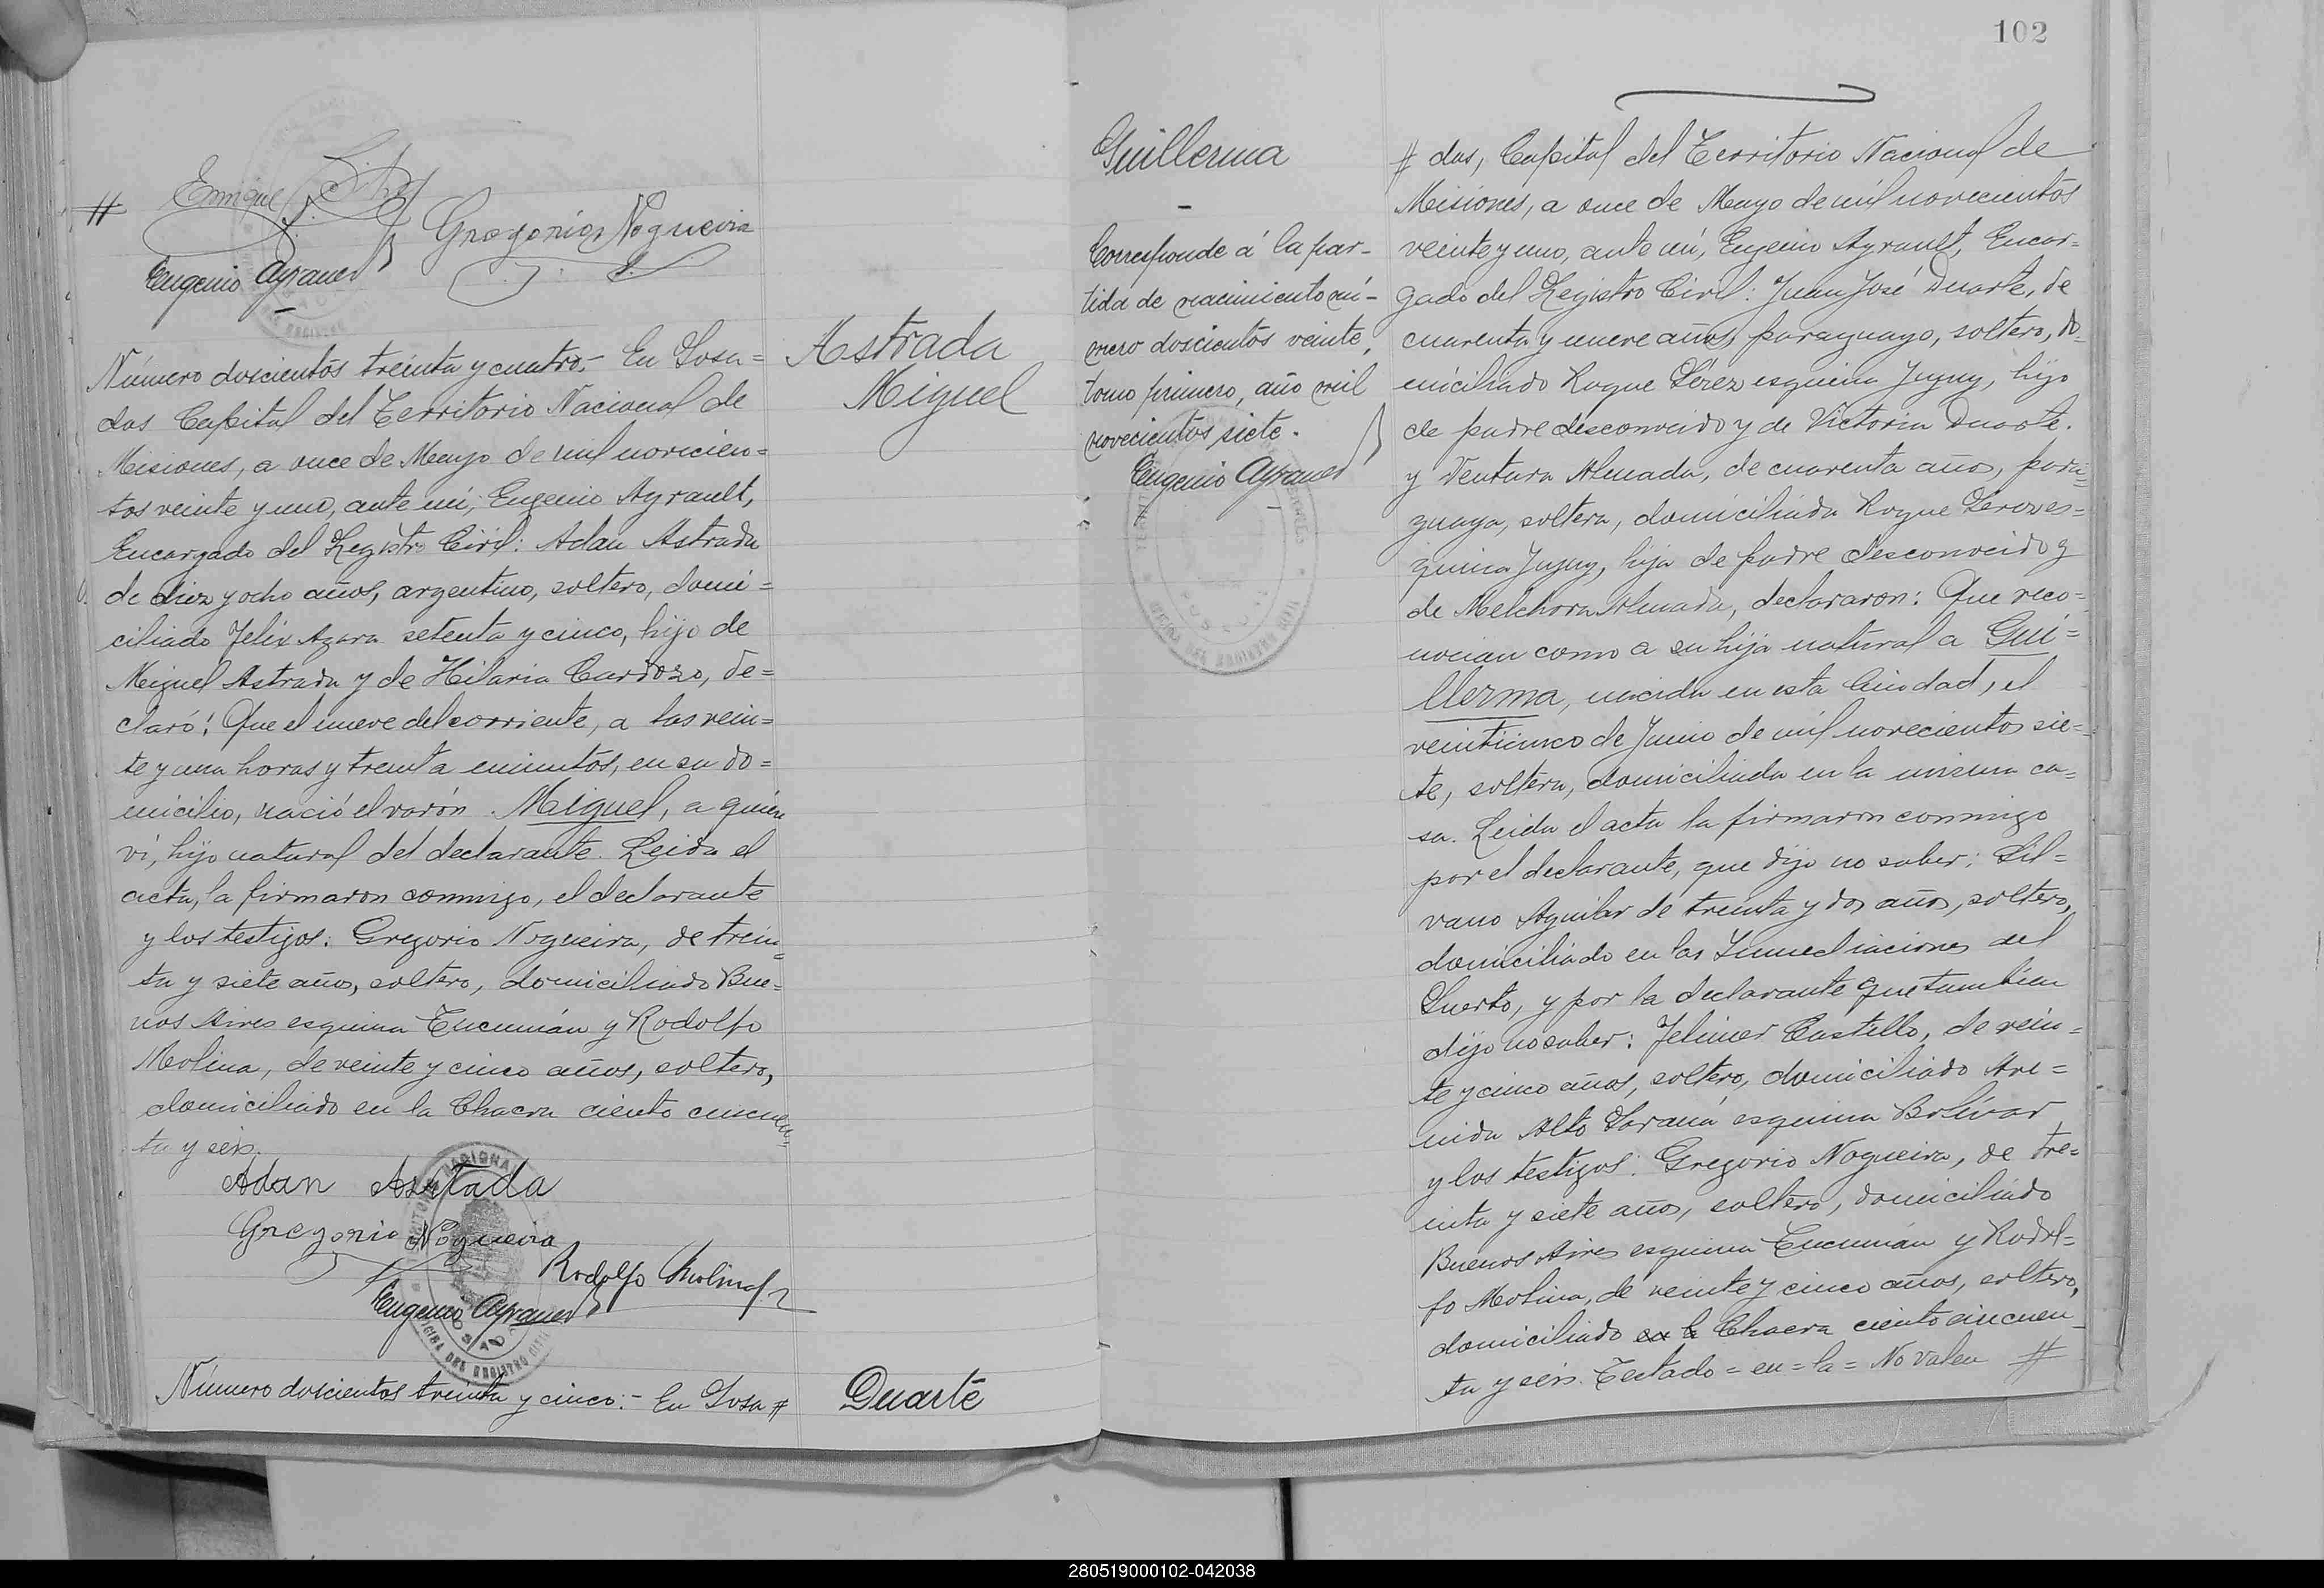 102
#
Enrique
Gregorio Nogueira
Eugenio Ayrault
Número doscientos treinta y cuatro.- En Posa=
das Capital del Territorio Nacional de
Misiones, a once de Mayo de mil novecien=
tos veinte y uno, ante mí, Eugenio Ayrault,
Encargado del Registro Civil: Adan Astrada
de diez y ocho años, argentino, soltero, domi=
ciliado Felix Azara setenta y cinco, hijo de
Miguel Astrada y de Hilaria Cardozo, de=
claró: Que el nueve del corriente, a las vein=
te y una horas y treinta minutos, en su do=
micilio, nació el varón Miguel, a quien
ví, hijo natural del declarante. Leida el
acta, la firmaron conmigo, el declarante
y los testigos: Gregorio Nogueira, de trein=
ta y siete años, soltero, domiciliado Bue=
nos Aires esquina Tucumán y Rodolfo
Molina, de veinte y cinco años, soltero,
domiciliado en la Chacra ciento cincuen=
ta y seis.
Adan Astrada
Gregorio Nogueira
Rodolfo Molina
Eugenio Ayrault
Número doscientos treinta y cinco:- En Posa #
Astrada
Miguel
Duarte
Guillerma
Corresponde á la par-
tida de nacimiento nú-
mero doscientos veinte,
tomo primero, año mil
novecientos siete.
Eugenio Ayrault
# das, Capital del Territorio Nacional de
Misiones, a once de Mayo de mil novecientos
veinte y uno, ante mí, Eugenio Ayrault, Encar=
gado del Registro Civil: Juan José Duarte, de
cuarenta y nueve años, paraguayo, soltero, do=
miciliado Roque Pérez esquina Jujuy, hijo
de padre desconocido y de Victoria Duarte.
y Ventura Almada, de cuarenta años, para=
guaya, soltera, domiciliada Roque Perez es=
quina Jujuy, hija de padre desconocido y
de Melchora Almada, declararon: Que reco=
nocian como a su hija natural a Gui=
llerma, nacida en esta Ciudad, el
veinticinco de Junio de mil novecientos sie=
te, soltera, domiciliada en la misma ca=
sa. Leida el acta la firmaron conmigo
por el declarante, que dijo no saber: Sil=
vano Aguilar de treinta y dos años, soltero,
domiciliado en las Inmediaciones del
Puerto, y por la declarante que tambien
dijo no saber: Felimer Castillo, de vein=
te y cinco años, soltero, domiciliado Ave=
nida Alto Paraná esquina Bolívar
y los testigos: Gregorio Nogueira, de tre=
inta y siete años, soltero, domiciliado
Buenos Aires esquina Tucumán y Rodol=
fo Molina, de veinte y cinco años, soltero,
domiciliado en la Chacra ciento cincuen
ta y seis. Testado = en = la = No valen #
280519000102-042038